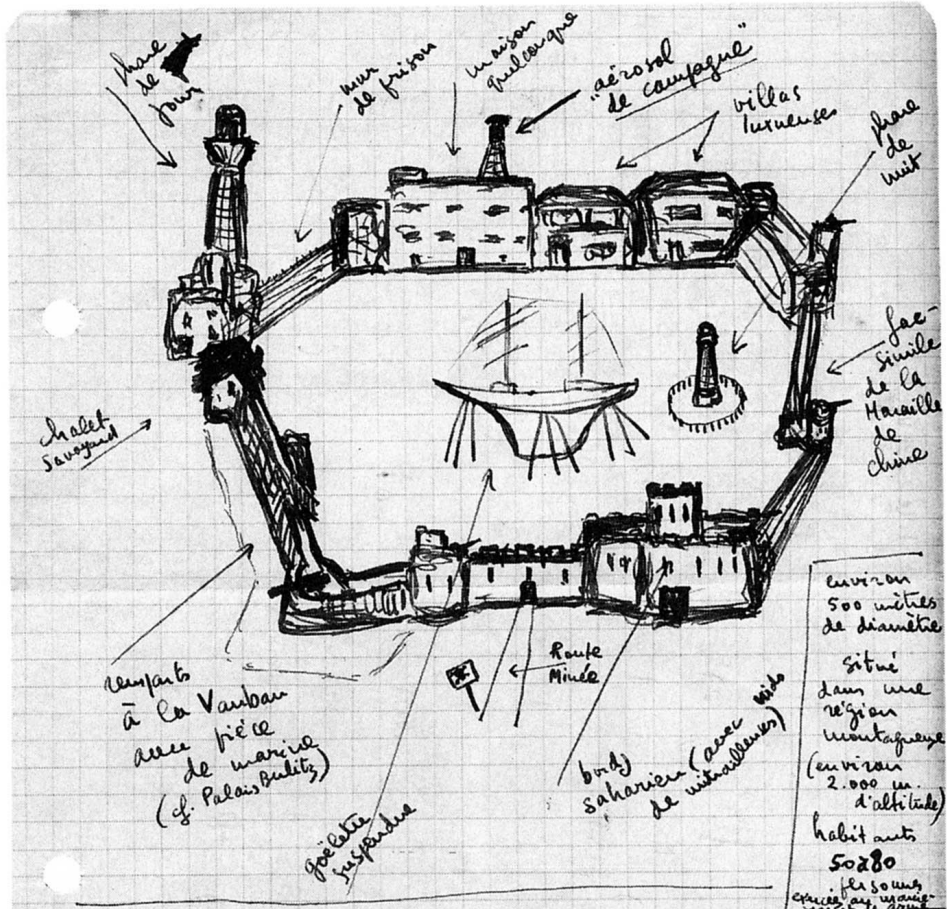 phare
de
jour
mur
de prison
maison
quelconque
"aérosol
de campagne"
villas
luxueuses
phare
de
nuit
fac-
simile
de la
Muraille
de
chine
chalet
Savoyard
remparts
à la Vauban
avec pièce
de marine
(cf. Palais Bulitz)
goëlette
suspendue
Route
Minée
bordj
saharien (avec nids
de mitrailleuses)
environ
500 mètres
de diamètre
Situé
dans une
région
montagneuse
(environ
2.000 m.
d'altitude)
habitants
50 à 80
personnes